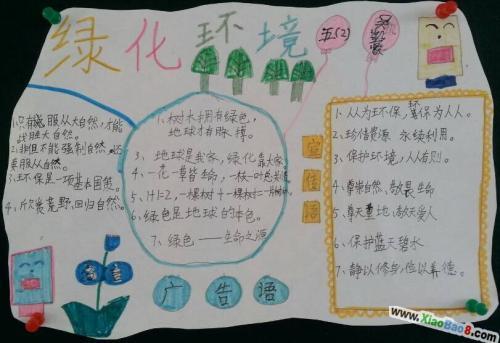 绿化环境
五(2)
1.只有服从大自然,才能
战胜大自然。
2.非但不能强制自然,还
要服从自然。
3.环保是一项基本国策。
4、欣赏荒野,回归自然。
1.树木拥有绿色,
地球才有脉搏。
3、地球是我家,绿化靠大家。
4、一花一草皆生命,一枝一叶总关情
5、1+1=2,一棵树+一棵树=一片树林。
6、绿色是地球的本色。
7、绿色——生命之源
宣
传
语
1.人人为环保,环保为人人。
2、珍惜资源 永续利用。
3、保护环境,人人有责!
4、尊崇自然、敬畏生命
5、尊天重地、敬天爱人
6、保护蓝天碧水
7、静以修身,俭以养德。
广告语
www.XiaoBao8.com